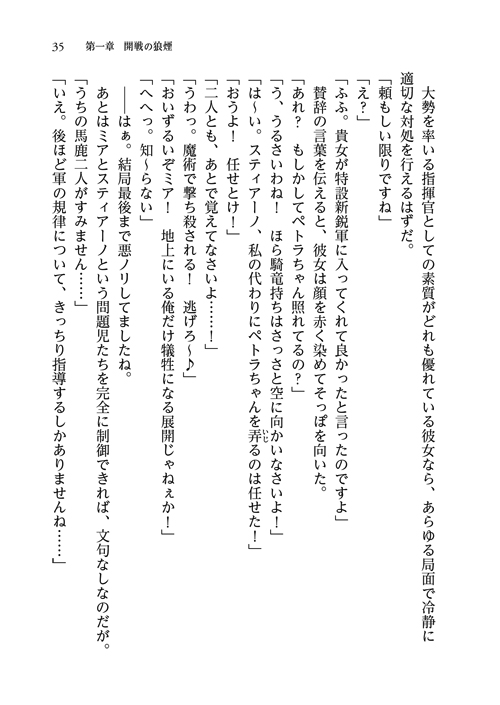 35　第一章　開戦の狼煙
　大勢を率いる指揮官としての素質がどれも優れている彼女なら、あらゆる局面で冷静に
適切な対処を行えるはずだ。
「頼もしい限りですね」
「え？」
「ふふ。貴女が特設新鋭軍に入ってくれて良かったと言ったのですよ」
　賛辞の言葉を伝えると、彼女は顔を赤く染めてそっぽを向いた。
「あれ？　もしかしてペトラちゃん照れてるの？」
「う、うるさいわね！　ほら騎竜持ちはさっさと空に向かいなさいよ！」
「は～い。スティアーノ、私の代わりにペトラちゃんを弄るのは任せた！」
いじ
「おうよ！　任せとけ！」
「二人とも、あとで覚えてなさいよ……！」
「うわっ。魔術で撃ち殺される！　逃げろ～♪」
「おいずるいぞミア！　地上にいる俺だけ犠牲になる展開じゃねぇか！」
「へへっ。知～らない」
　――はぁ。結局最後まで悪ノリしてましたね。
　あとはミアとスティアーノという問題児たちを完全に制御できれば、文句なしなのだが。
「うちの馬鹿二人がすみません……」
「いえ。後ほど軍の規律について、きっちり指導するしかありませんね……」